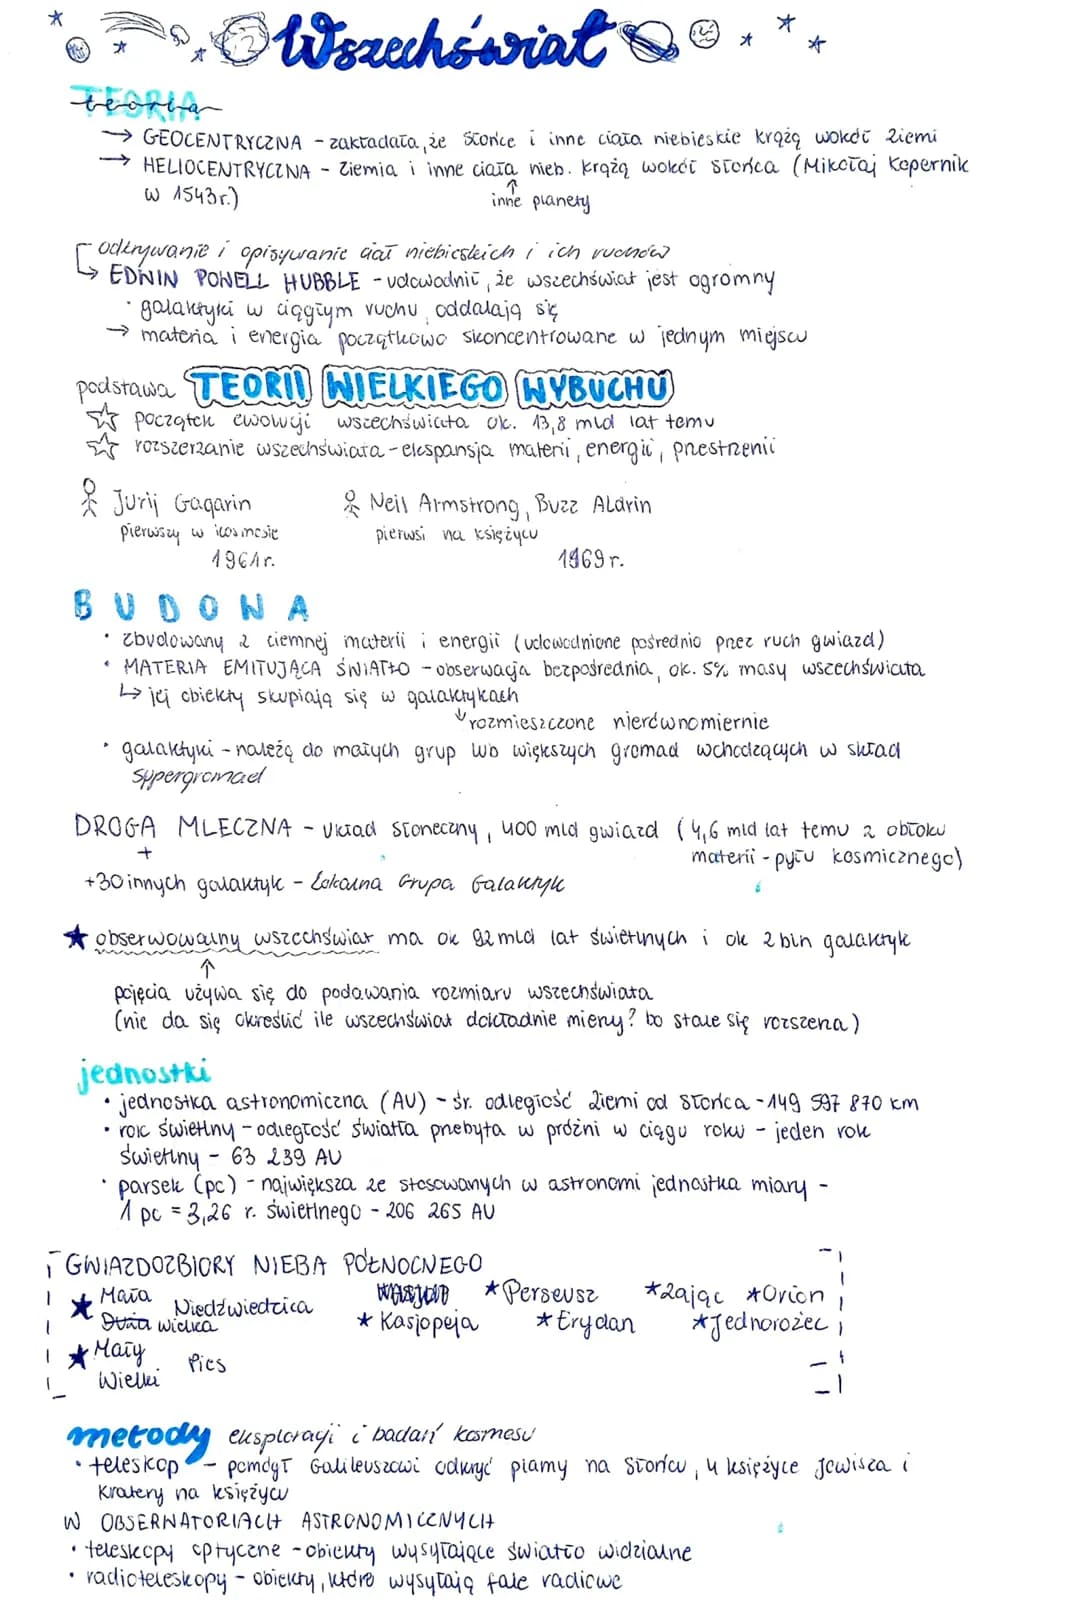 Wszechświat
TEORIA
teoria
→ GEOCENTRYCZNA - zakładała, że Słońce i inne ciała niebieskie krążą wokół Ziemi
→ HELIOCENTRYCZNA - Ziemia i inne ciała nieb. krążą wokół Słońca (Mikołaj Kopernik
w 1543r.)
↑
inne planety
odkrywanie i opisywanie ciał niebieskich i ich ruchów
↳ EDWIN POWELL HUBBLE - udowodnił, że wszechświat jest ogromny
· galaktyki w ciągłym ruchu, oddalają się
→ materia i energia początkowo skoncentrowane w jednym miejscu
podstawa TEORII WIELKIEGO WYBUCHU
☆ początek ewolucji wszechświata ok. 13,8 mld lat temu
☆ rozszerzanie wszechświata - ekspansja materii, energii, przestrzenii
Jurij Gagarin
pierwszy w kosmosie
1961r.
Neil Armstrong, Buzz Aldrin
pierwsi na księżycu
1969r.
BUDOWA
· zbudowany z ciemnej materii i energii (udowodnione pośrednio przez ruch gwiazd)
· MATERIA EMITUJĄCA ŚWIATŁO - obserwacja bezpośrednia, ok. 5% masy wszechświata
↳ jej obiekty skupiają się w galaktykach
↓ rozmieszczone nierównomiernie
· galaktyki - należą do małych grup lub większych gromad wchodzących w skład
supergromad
DROGA MLECZNA - układ słoneczny, 400 mld gwiazd (4,6 mld lat temu z obłoku
materii - pyłu kosmicznego)
+
+30 innych galaktyk - Lokalna Grupa Galaktyk
★ obserwowalny wszechświat ma ok 92 mld lat świetlnych i ok 2 bln galaktyk
↑
pojęcia używa się do podawania rozmiaru wszechświata
(nie da się określić ile wszechświat dokładnie mierzy? bo stale się rozszerza)
jednostki
· jednostka astronomiczna (AU) - śr. odległość Ziemi od Słońca - 149 597 870 km
· rok świetlny - odległość światła przebyta w próżni w ciągu roku - jeden rok
świetlny - 63 239 AU
· parsek (pc) - największa ze stosowanych w astronomi jednostka miary -
1 pc = 3,26 r. świetlnego - 206 265 AU
GWIAZDOZBIORY NIEBA PÓŁNOCNEGO
★ Mała
wielka
Niedźwiedzica
★ Perseusz ★ Zając ★ Orion
★ Kasjopeja ★ Erydan ★ Jednorożec
★ Mały
Wielki
Pies
metody eksploracji i badań kosmosu
· teleskop - pomógł Galileuszowi odkryć plamy na Słońcu, 4 księżyce Jowisza i
kratery na księżycu
W OBSERWATORIACH ASTRONOMICZNYCH
· teleskopy optyczne - obiekty wysyłające światło widzialne
· radioteleskopy - obiekty, które wysyłają fale radiowe